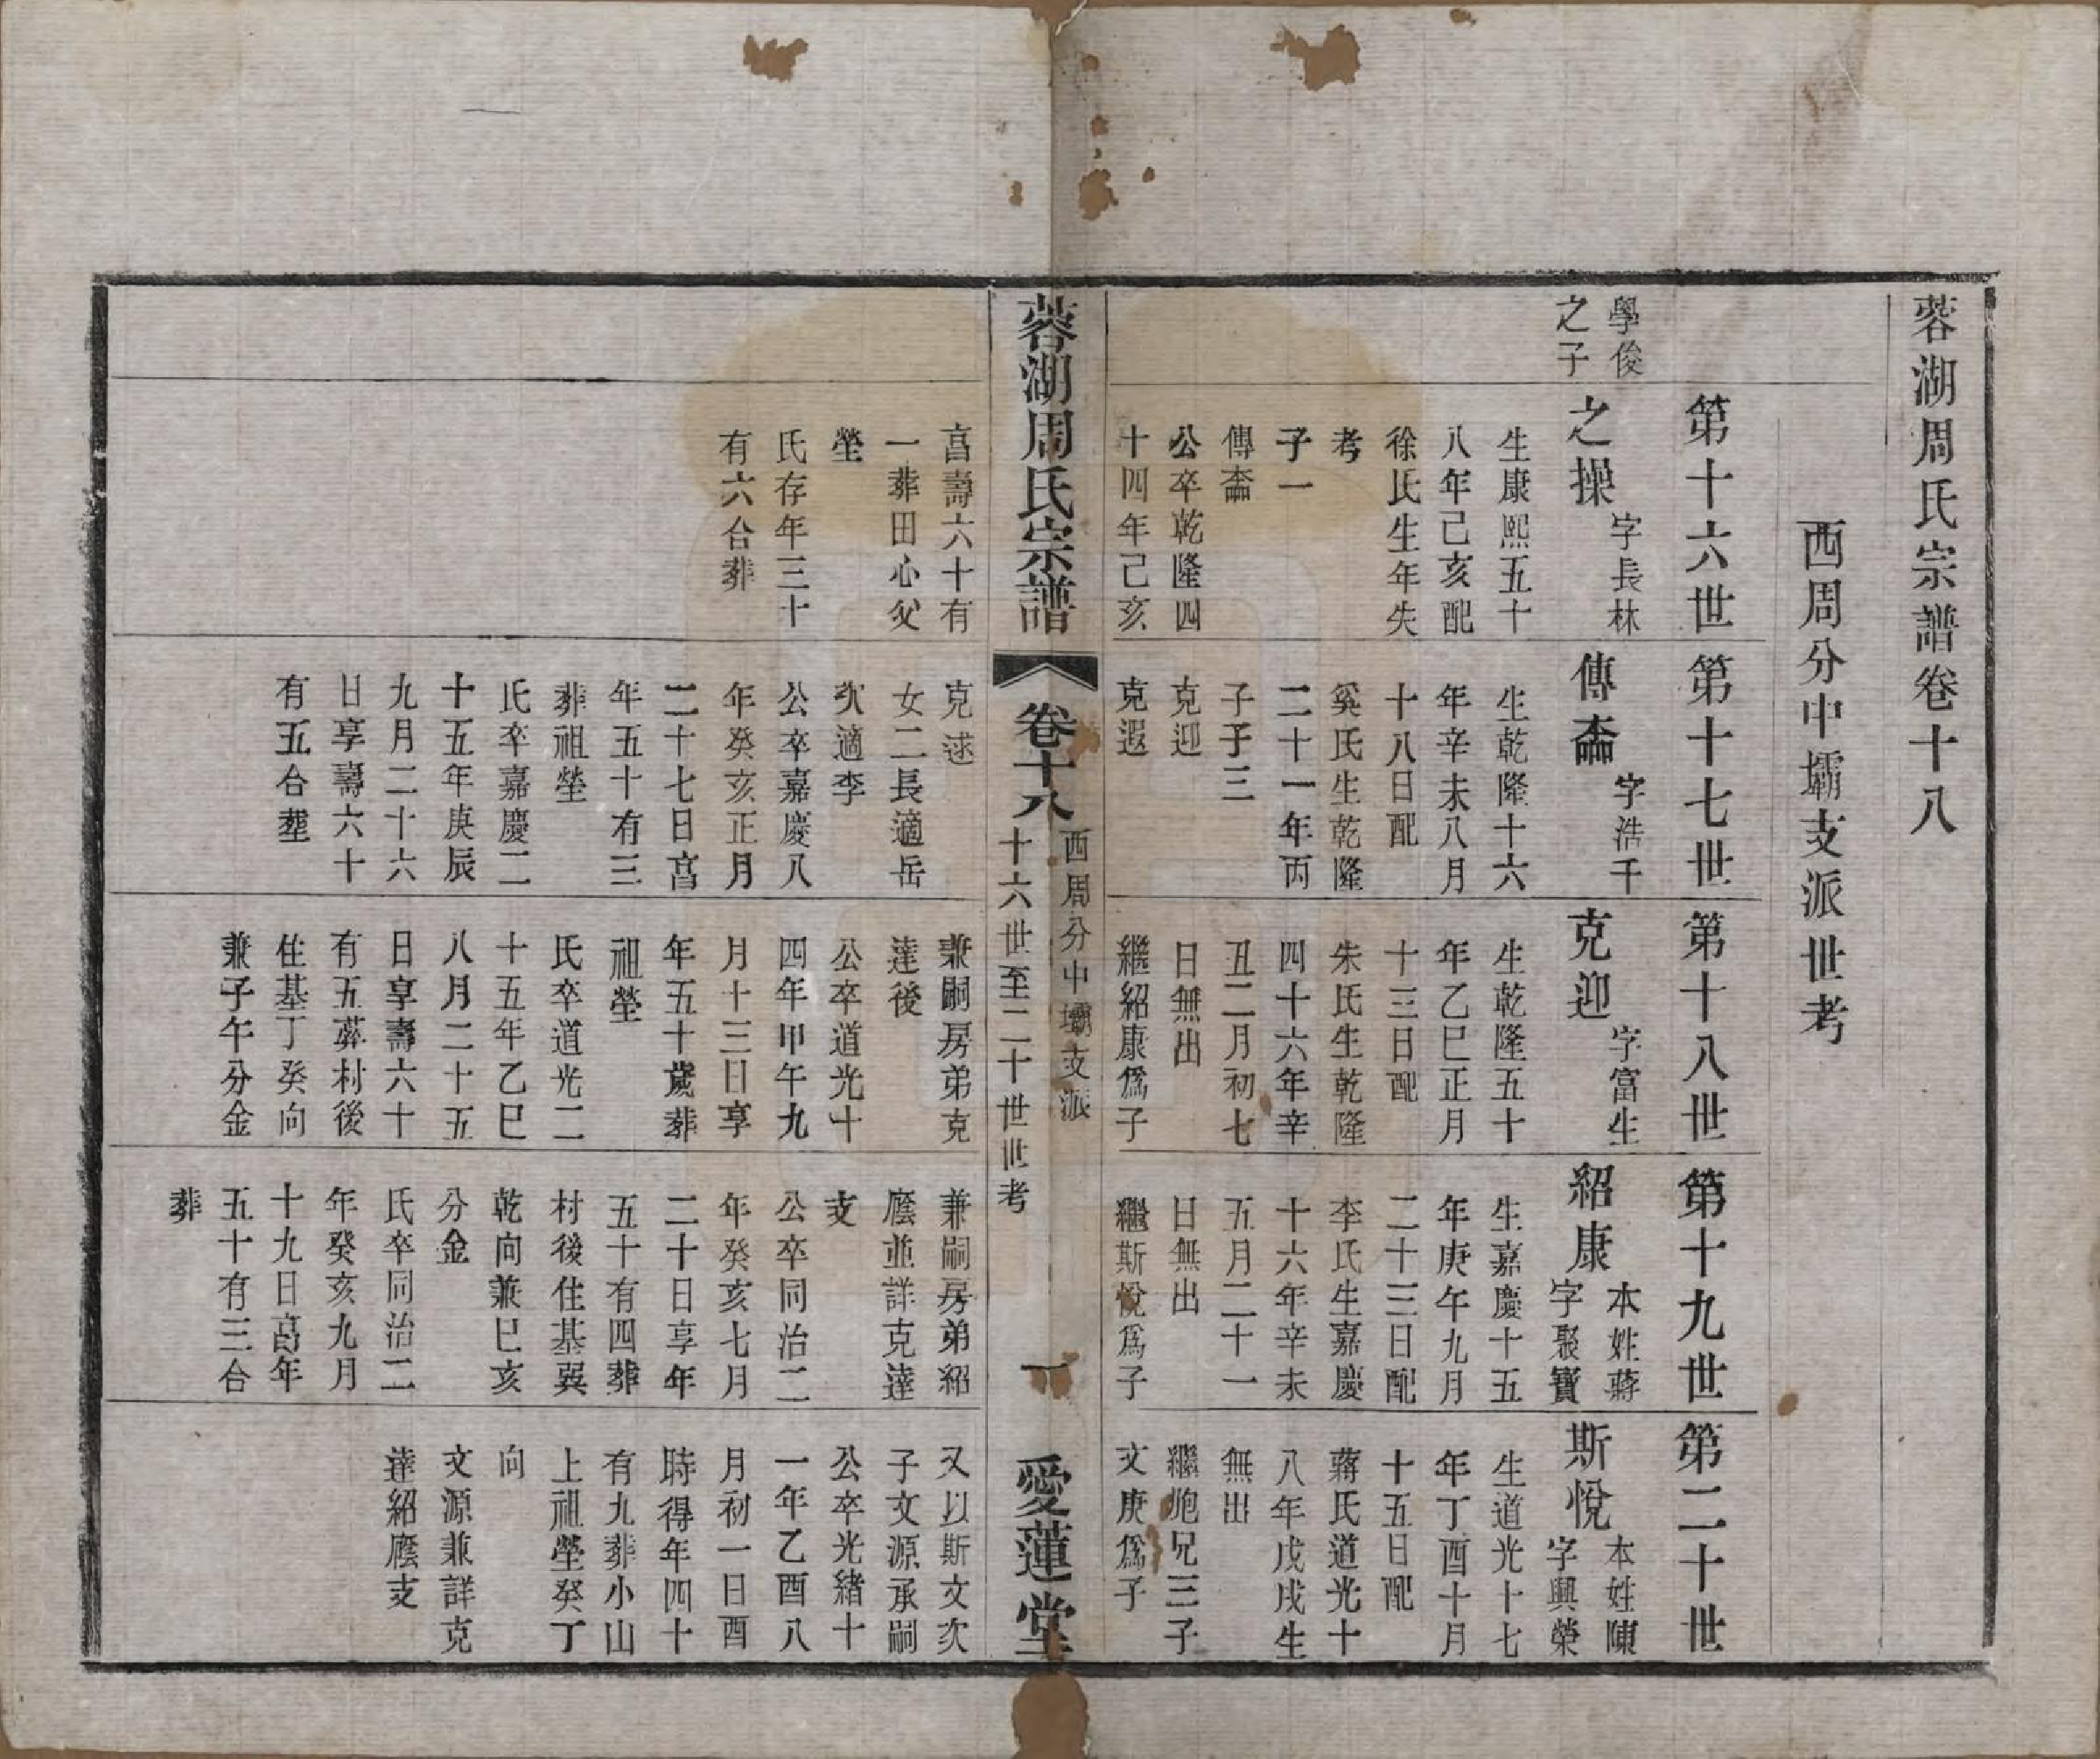 蓉湖周氏宗譜卷十八
西周分中壩支派世考
學俊
之子
第十六世
之操
字長林
生康熙五十
八年己亥配
徐氏生年失
考
子一
傳𣚴
公卒乾隆四
十四年己亥
亯壽六十有
一葬田心父
塋
氏存年三十
有六合葬
第十七世
傳𣚴
字浩千
生乾隆十六
年辛未八月
十八日配
奚氏生乾隆
二十一年丙
子子三
克迎
克遐
克逑
女二長適岳
次適李
公卒嘉慶八
年癸亥正月
二十七日亯
年五十有三
葬祖塋
氏卒嘉慶二
十五年庚辰
九月二十六
日享壽六十
有五合塟
第十八世
克迎
字富生
生乾隆五十
年乙巳正月
十三日配
朱氏生乾隆
四十六年辛
丑二月初七
日無出
繼紹康爲子
兼嗣房弟克
達後
公卒道光十
四年甲午九
月十三日享
年五十歲葬
祖塋
氏卒道光二
十五年乙巳
八月二十五
日享壽六十
有五葬村後
住基丁癸向
兼子午分金
第十九世
紹康
本姓蔣
字聚寶
生嘉慶十五
年庚午九月
二十三日配
李氏生嘉慶
十六年辛未
五月二十一
日無出
繼斯悅爲子
兼嗣房弟紹
廕並詳克達
支
公卒同治二
年癸亥七月
二十日享年
五十有四葬
村後住基巽
乾向兼巳亥
分金
氏卒同治二
年癸亥九月
十九日亯年
五十有三合
葬
第二十世
斯悅
本姓陳
字興榮
生道光十七
年丁酉十月
十五日配
蔣氏道光十
八年戊戌生
無出
繼胞兄三子
文庚爲子
又以斯文次
子文源承嗣
公卒光緒十
一年乙酉八
月初一日酉
時得年四十
有九葬小山
上祖塋癸丁
向
文源兼詳克
達紹廕支
蓉湖周氏宗譜
卷十八
西周分中壩支派
十六世至二十世世考
一
愛蓮堂